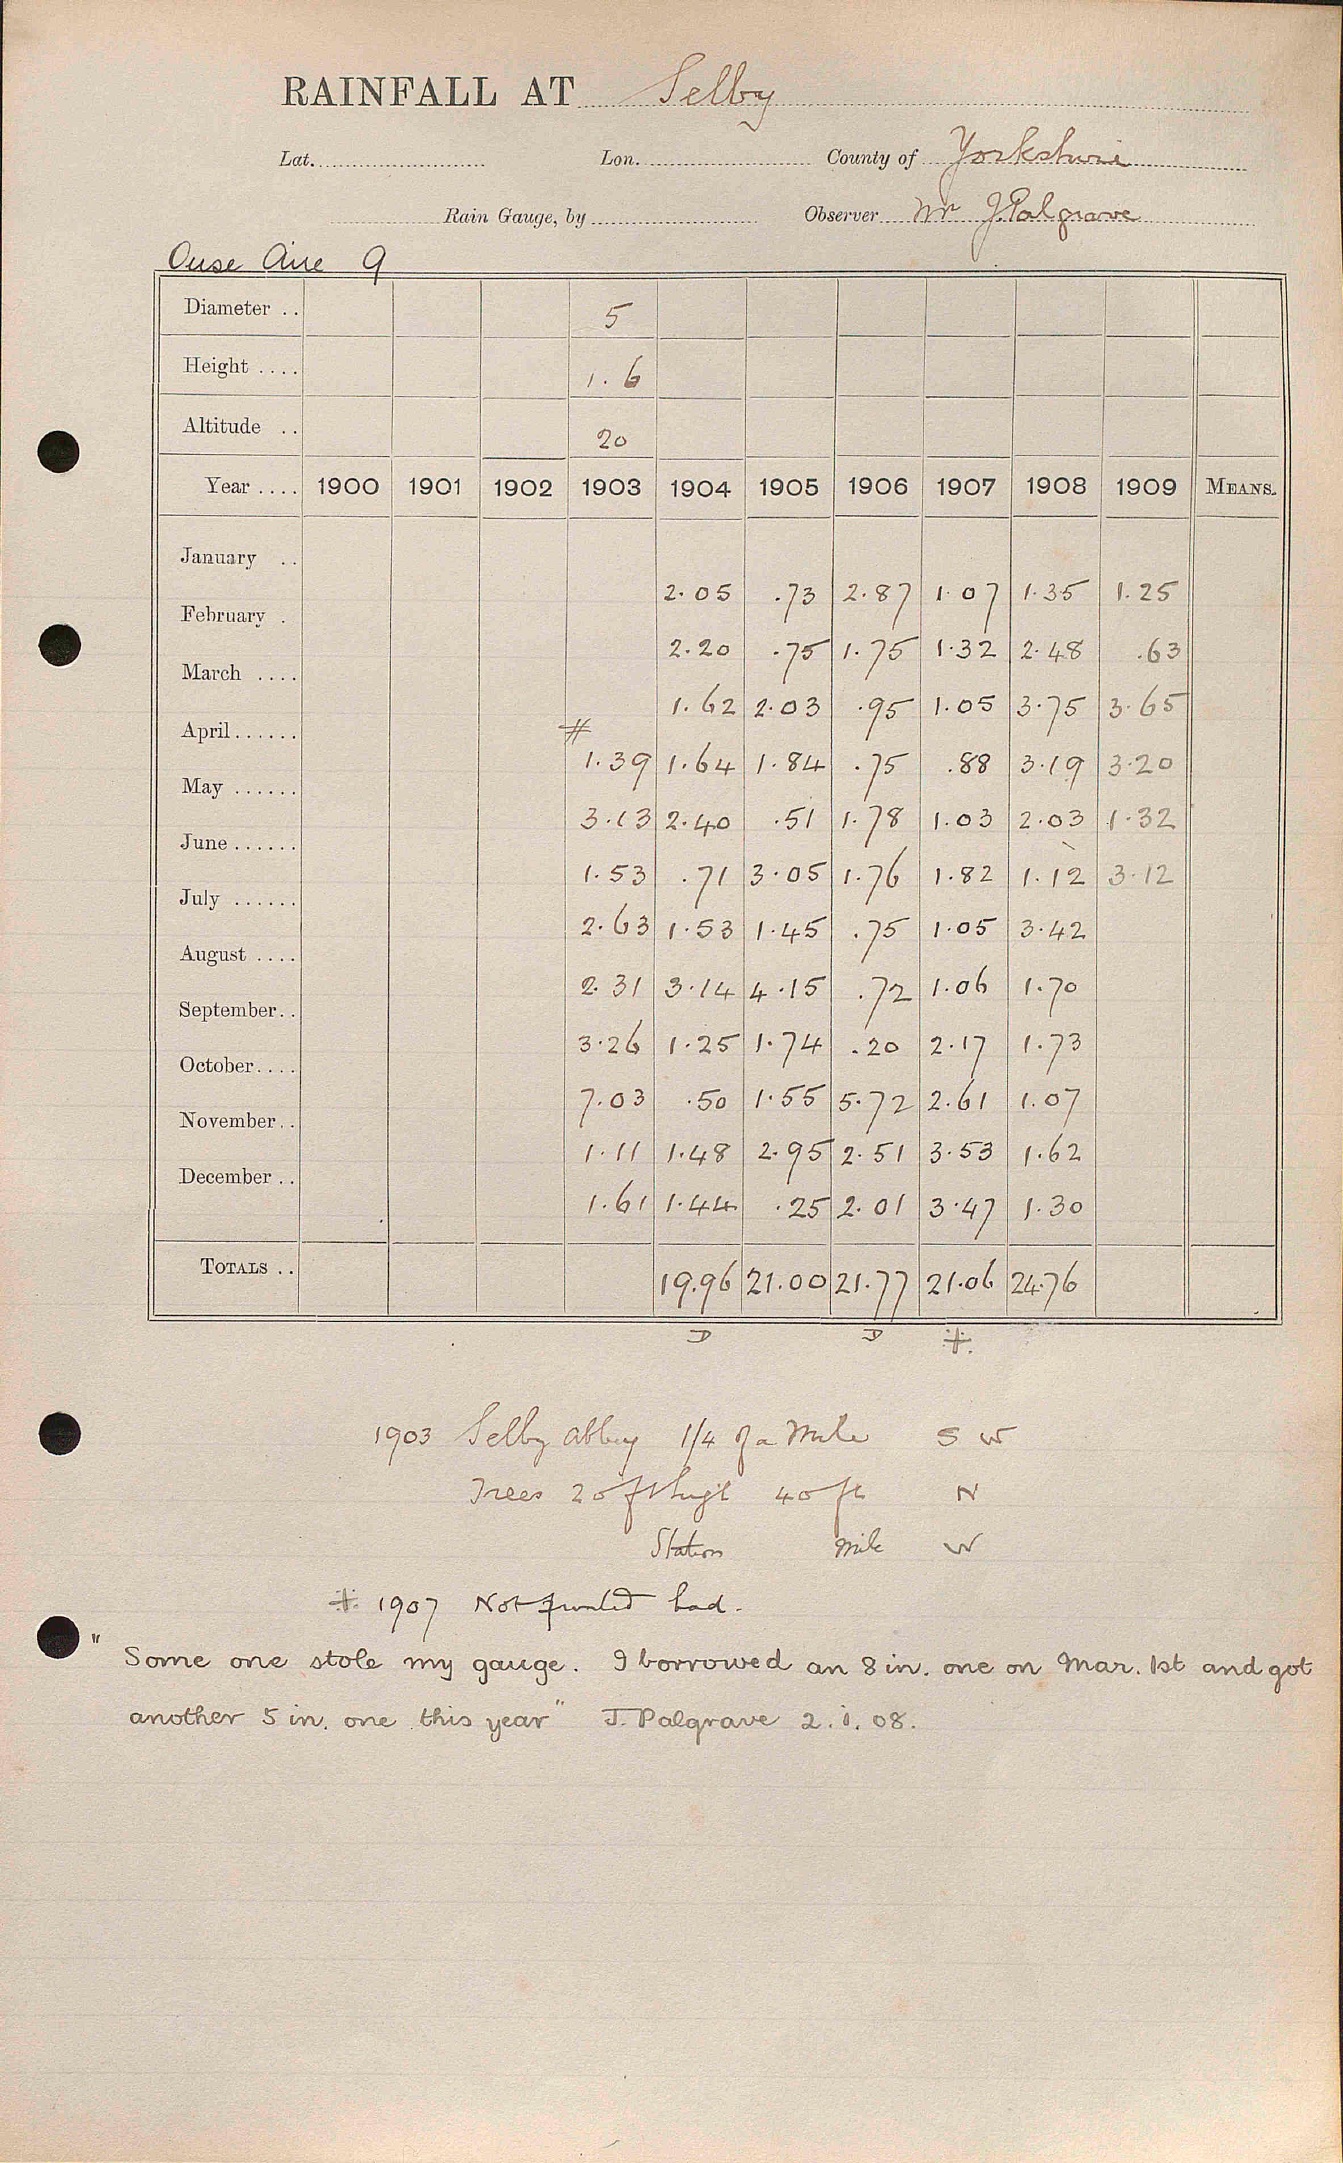 RAINFALL AT Selby
Lat. Lon. County of Yorkshire
Rain Gauge, by Observer Mr J. Palgrave
Ouse Aire 9
Diameter .. 5
Height .... 1.6
Altitude .. 20
Year .... 1900 1901 1902 1903 1904 1905 1906 1907 1908 1909 MEANS.
January .. 2.05 .73 2.87 1.07 1.35 1.25
February . 2.20 .75 1.75 1.32 2.48 .63
March .... 1.62 2.03 .95 1.05 3.75 3.65
April...... # 1.39 1.64 1.84 .75 .88 3.19 3.20
May ...... 3.13 2.40 .51 1.78 1.03 2.03 1.32
June ...... 1.53 .71 3.05 1.76 1.82 1.12 3.12
July ...... 2.63 1.53 1.45 .75 1.05 3.42
August .... 2.31 3.14 4.15 .72 1.06 1.70
September.. 3.26 1.25 1.74 .20 2.17 1.73
October.... 7.03 .50 1.55 5.72 2.61 1.07
November.. 1.11 1.48 2.95 2.51 3.53 1.62
December .. 1.61 1.44 .25 2.01 3.47 1.30
TOTALS .. 19.96 21.00 21.77 21.06 24.76
D D ‡
1903 Selby Abbey 1/4 of a Mile S W
Trees 20 ft high 40 ft N
Station Mile W
‡ 1907 Not printed bad.
" Some one stole my gauge. I borrowed an 8 in. one on Mar. 1st and got
another 5 in. one this year " J. Palgrave 2.1.08.